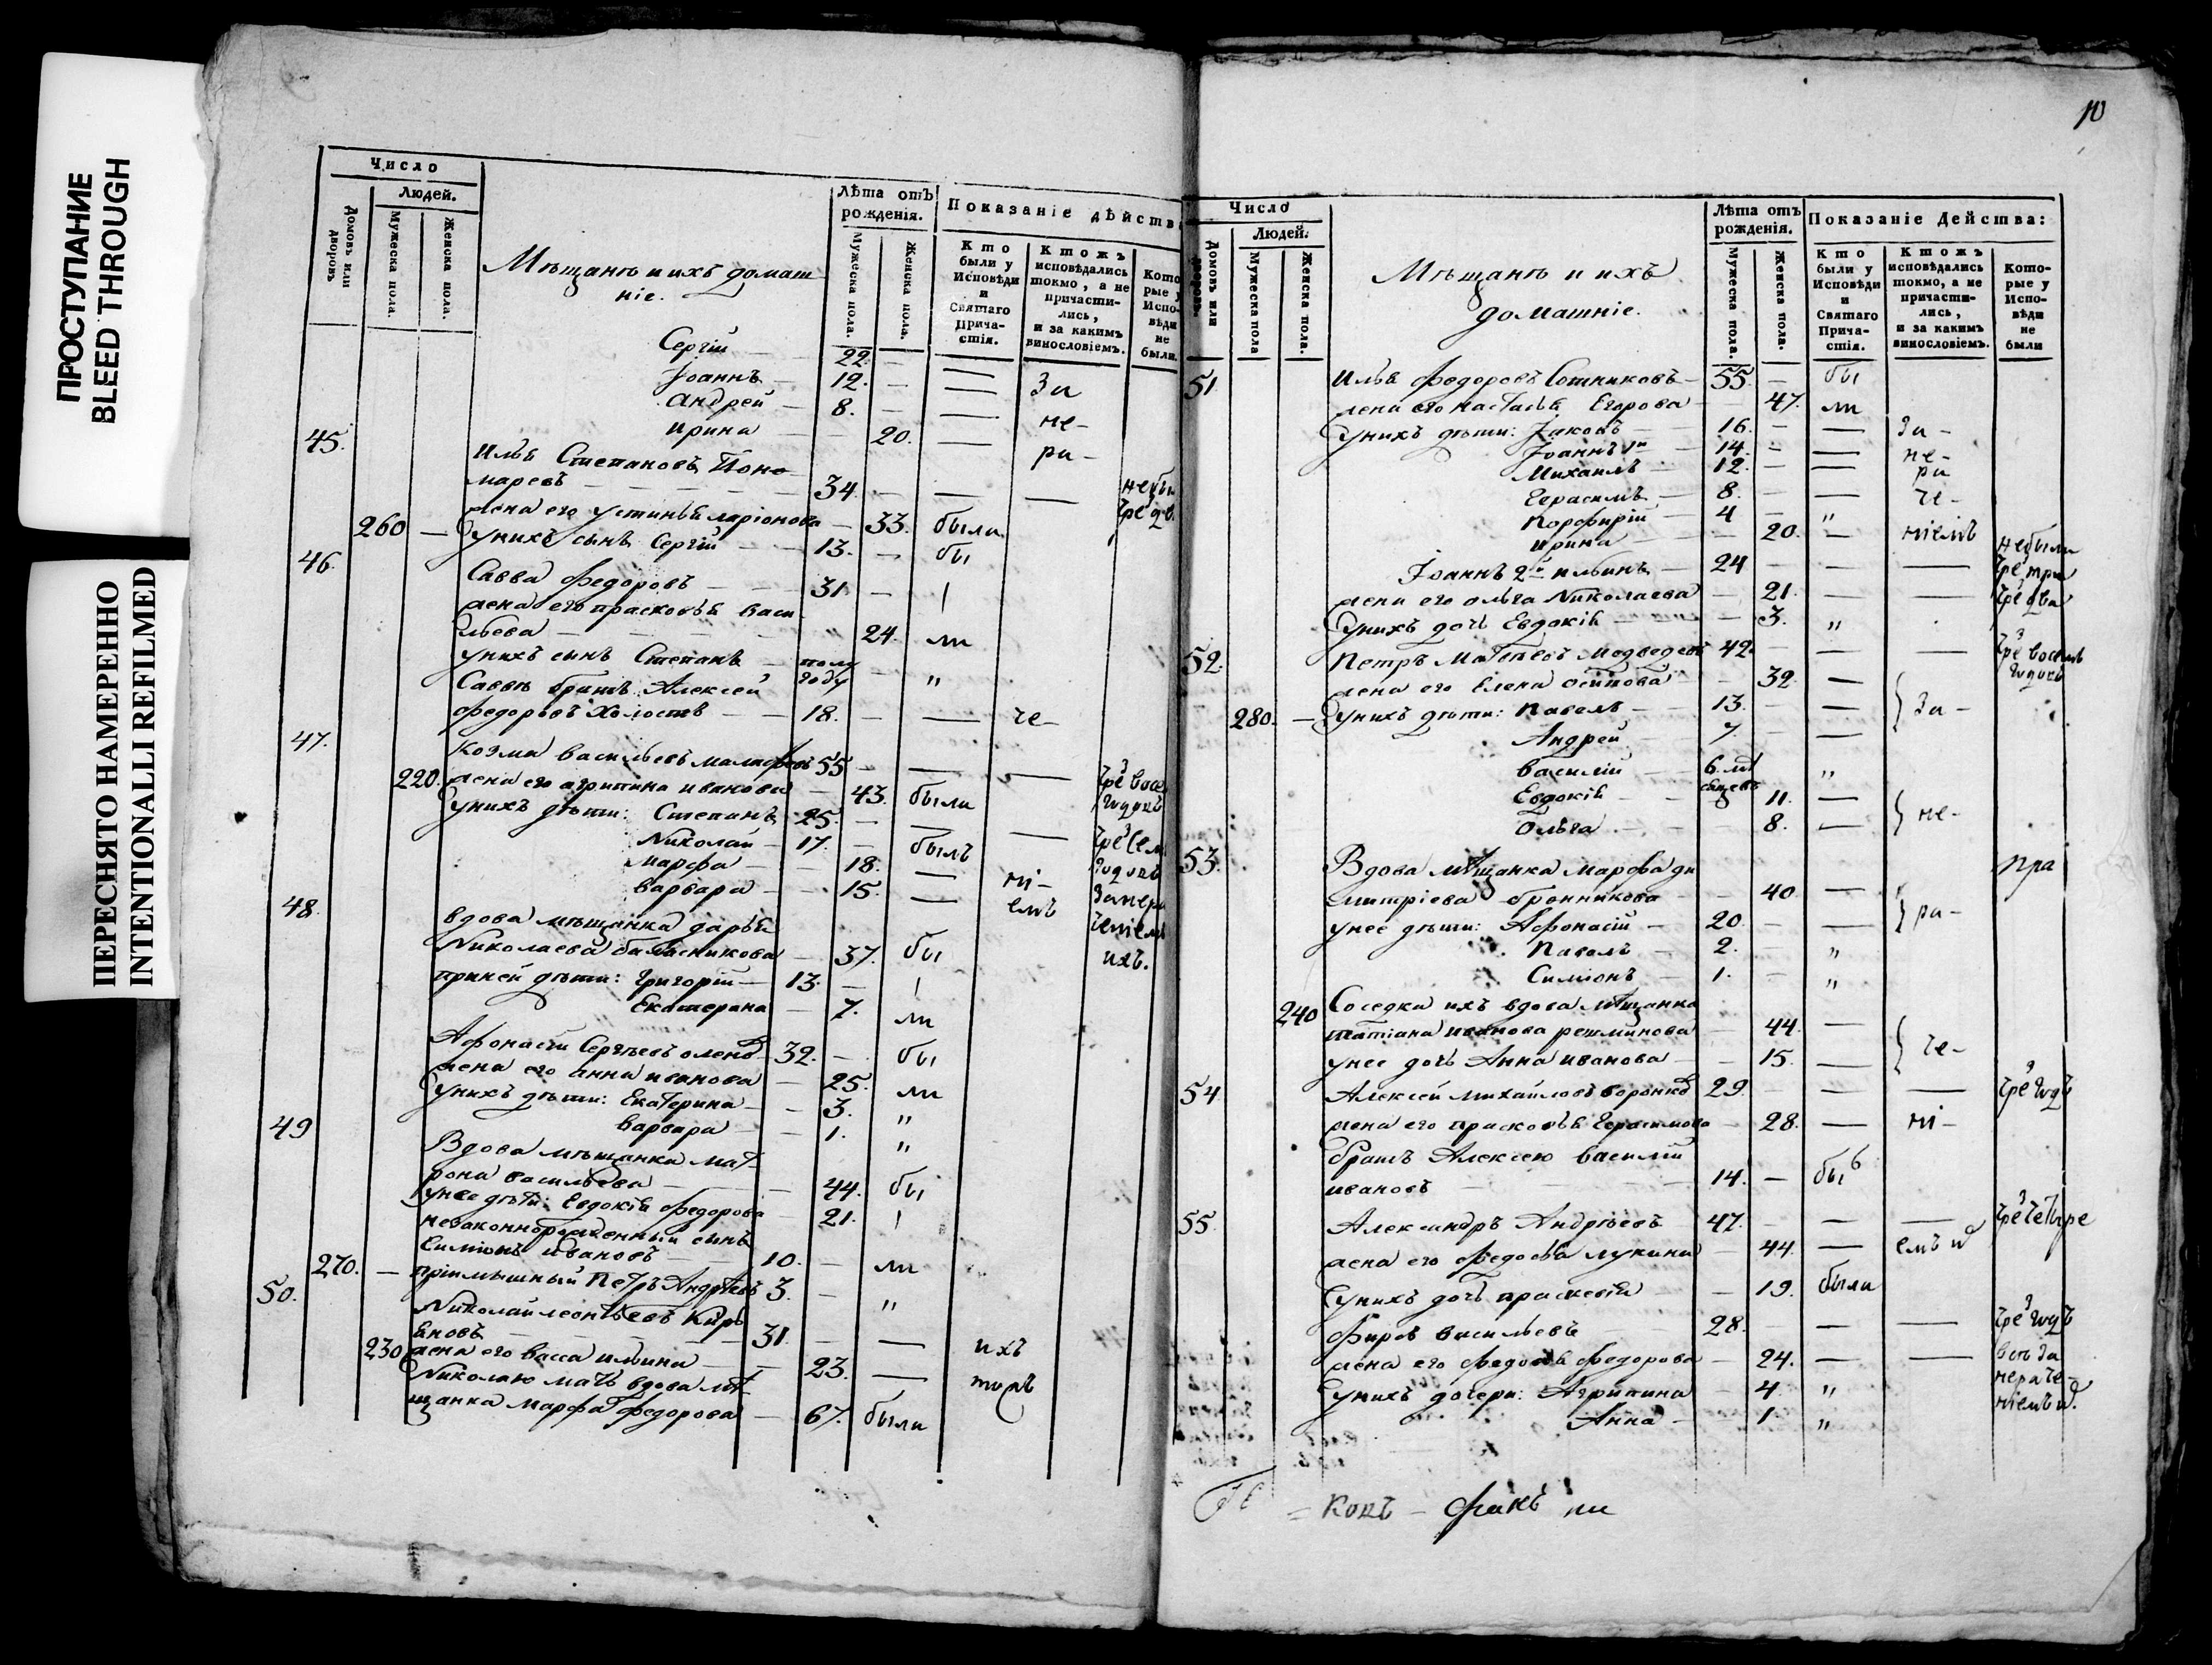 ПРОСТУПАНИЕ
BLEED THROUGH
ПЕРЕСНЯТО НАМЕРЕННО
INTENTIONALLI REFILMED
Число
Людей.
Домовъ или дворовъ
Мужеска пола.
Женска пола.
Мѣщанъ и ихъ домаш
ніе.
Лѣта отъ рожденія.
Мужеска пола.
Женска пола.
Показаніе дѣйств
Кто были у Исповѣди и Святаго Прича-стія.
Ктожъ исповѣдались токмо, а не причасти-лись, и за какимъ винословіемъ.
Кото рые у Испо-вѣди не были.
Сергій 22. —
Іоаннъ 12. — — За
Андрей 8. — — не-
Ирина — 20. — ра-
45. Илья Степановъ Поно
маревъ 34. — —
жена его Устинья Ларіонова — 33. были
260 — У нихъ сынъ Сергій 13. — бы
46. Савва Федоровъ 31 — |
жена его Прасковья Васи
льева 24. ли
У нихъ сынъ Степанъ полу году — "
Саввы братъ Алексей
Федоровъ холостъ 18. — — че-
47. Козма Васильевъ 55 — —
220. жена его Агрипина Иванова — 43. были
У нихъ дѣти: Степанъ 25. — —
Николай 17. — былъ
Марфа — 18. — ні-
Варвара — 15. — емъ
48. Вдова мѣщанка Дарья
Николаева — 37. бы
при ней дѣти: Григорій 13. — |
Екатерина — 7. ли
Афонасій Сергѣевъ 32. — бы
жена его Анна Иванова — 25. ли
У нихъ дѣти: Екатерина — 3. "
Варвара — 1. "
49 Вдова мѣщанка Мат
рона Васильева — 44. бы
У нее дѣти: Евдокія Федорова — 21. |
незаконнорожденный сынъ
Симіонъ Ивановъ 10. — ли
270. — пріимышный Петръ Андрѣевъ 3. — "
50. Николай Леонтьевъ Кирь
яновъ 31. — — ихъ
230 жена его Васса Ильина — 23. —
Николаю мать вдова мѣ-
щанка Марфа Федорова — 67. были
10
Число
Людей.
Домовъ или дворовъ.
Мужеска пола
Женска пола.
Мѣщанъ и ихъ
домашніе.
Лѣта отъ рожденія.
Мужеска пола.
Женска пола.
Показаніе Действа:
Кто были у Исповѣди и Святаго Прича-стія.
Ктожъ исповѣдались токмо, а не причасти-лись, и за какимъ винословіемъ.
Кото-рые у Испо-вѣди не были
51 Илья Федоровъ Сотниковъ 55. — бы
жена его Настасья Егорова — 47. ли
У нихъ дѣти: Іаковъ 16. — — За-
Іоаннъ 1й 14. — — не-
Михаилъ 12. — — ра
Герасимъ 8. — — че-
Порфирій 4 — "
Ирина — 20. — ніемъ
не были
Іоаннъ 2й Ильинъ 24 — — — чрез три
жена его Ольга Николаева — 21. — — чрез два
У нихъ дочь Евдокія — 3. "
52. Петръ Матвѣевъ Медведевъ 42. — — — чрез восемь годовъ
жена его Елена Осипова — 32. —
280. — У нихъ дѣти: Павелъ 13. — — За-
Андрей 7. — —
Василій 6. мѣ сяцевъ "
Евдокія — 11. — не-
Ольга — 8. —
53. Вдова мѣщанка Марфа Ди
митріева Бронникова — 40. —
У нее дѣти: Афонасій 20. — — ра-
Павелъ 2. — "
Симіонъ 1. — "
240 Соседка ихъ вдова мѣщанка
Татіана Иванова — 44. —
У нее дочь Анна Иванова — 15. — че-
54 Алексей Михайловъ 29. — — — чрез годъ
жена его Прасковья Герасимова — 28. — ні-
братъ Алексею Василій
Ивановъ 14. — бы
55. Александръ Андрѣевъ 47. — — — чрез четыре
жена его Федосья Лукина — 44. — емъ
У нихъ дочь Праскевія — 19. были
Фирсъ Васильевъ 28. — — — чрез годъ
жена его Федосья Федорова — 24. — — все за
У нихъ дочери: Агрипина — 4. " нераче-
Анна — 1. " ніемъ